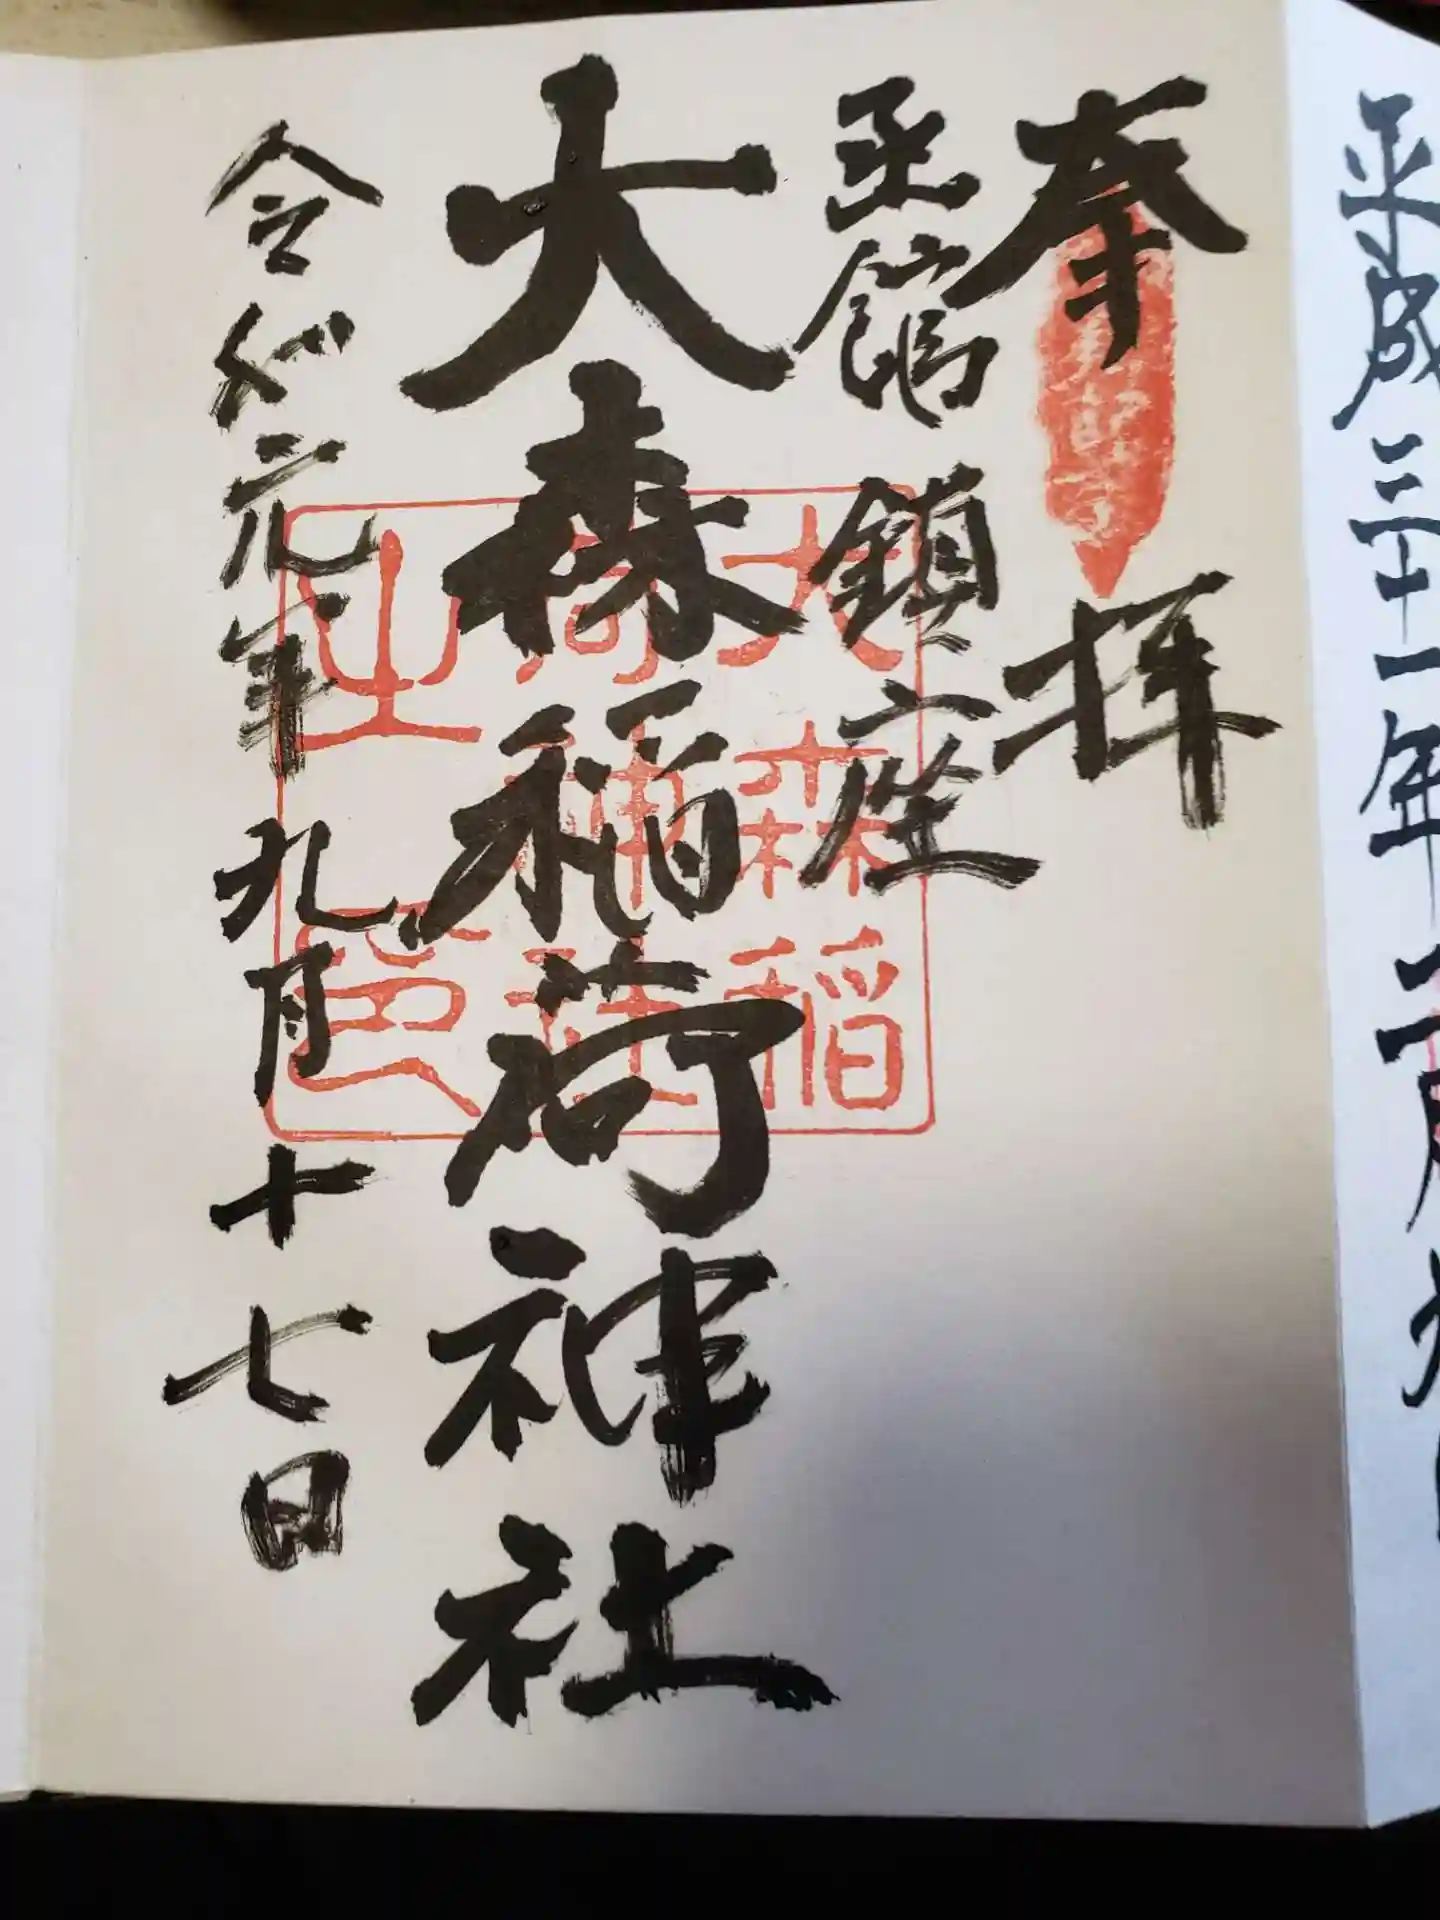 平成三十一年二月
奉拝
函館鎮座
大森稲荷神社
令和元年九月十七日
大森稲
荷神社
之印